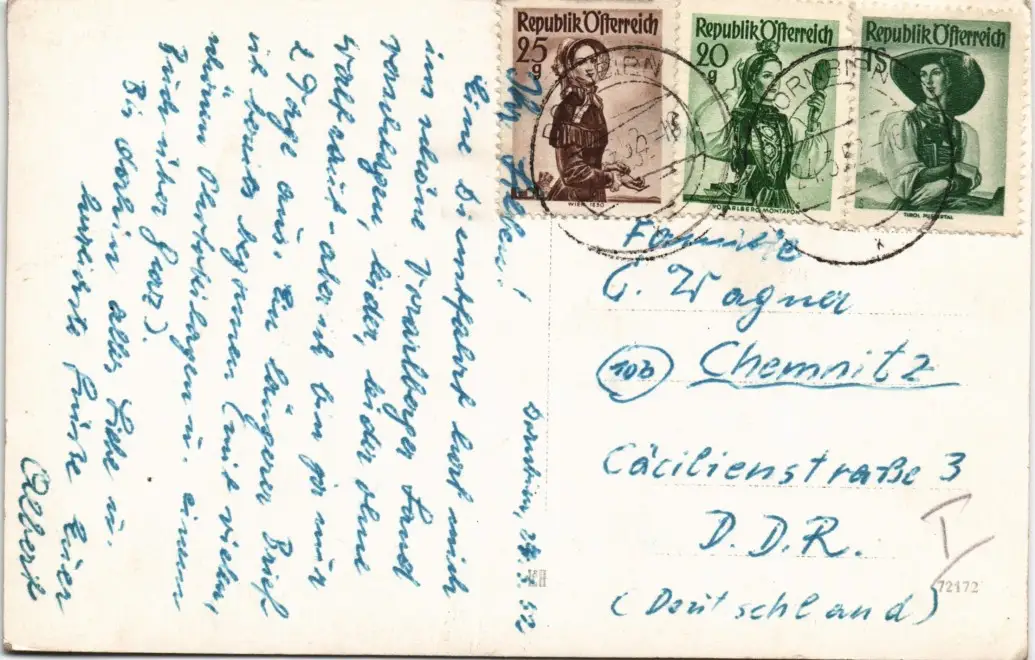 Republik Österreich
25
g
WIEN 1850
Republik Österreich
20
g
VORARLBERG, MONTAFON
Republik Österreich
1S
TIROL, PUSTERTAL
DORNBIRN
DORNBIRN
Dornbirn, 24. 52
Ihr Lieben!
Eine Dienstfahrt hat mich
ins schöne Vorarlberger Land
verschlagen, leider, leider ohne
Waltraut - aber ich bin ja nur
2 Tage aus. Ein längerer Brief
ist bereits begonnen (mit vielen,
schönen Photobeilagen u. einem
Büch für
Bis dorthin alles Liebe u.
Grüße Euer
Albert
Familie
G. Wagner
(10b) Chemnitz
Cäcilienstraße 3
D.D.R.
(Deutschland)
72172